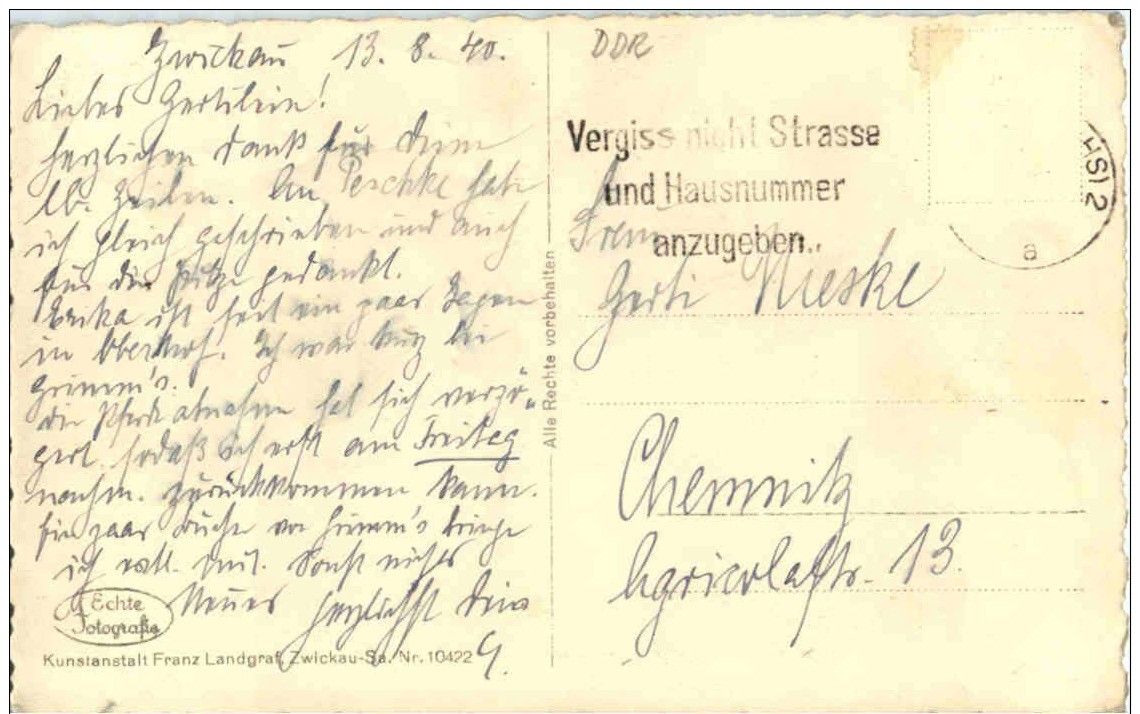 Zwickau 13. 8. 40.
Liebes Gertilein!
Herzlichen Dank für Deine
lb. Zeilen. An Peschke habe
ich gleich geschrieben und auch
für die gedankt.
Erika ist seit ein paar Tagen
in Oberhof. Ich war kurz bei
Grimm's.
Die Pferdeabnahme hat sich verzö-
gert, sodaß ich erst am Freitag
nachm. zurückkommen kann.
Ein paar Bücher von Grimm's bringe
ich evtl. mit. Sonst nichts
Neues herzlichst Dein
G.
Echte
Fotografie
Kunstanstalt Franz Landgraf, Zwickau-Sa. Nr. 10422
Alle Rechte vorbehalten
DDR
Vergiss nicht Strasse
und Hausnummer
anzugeben..
HS) 2
a
Gerti Nieske
Chemnitz
Agricolastr. 13.